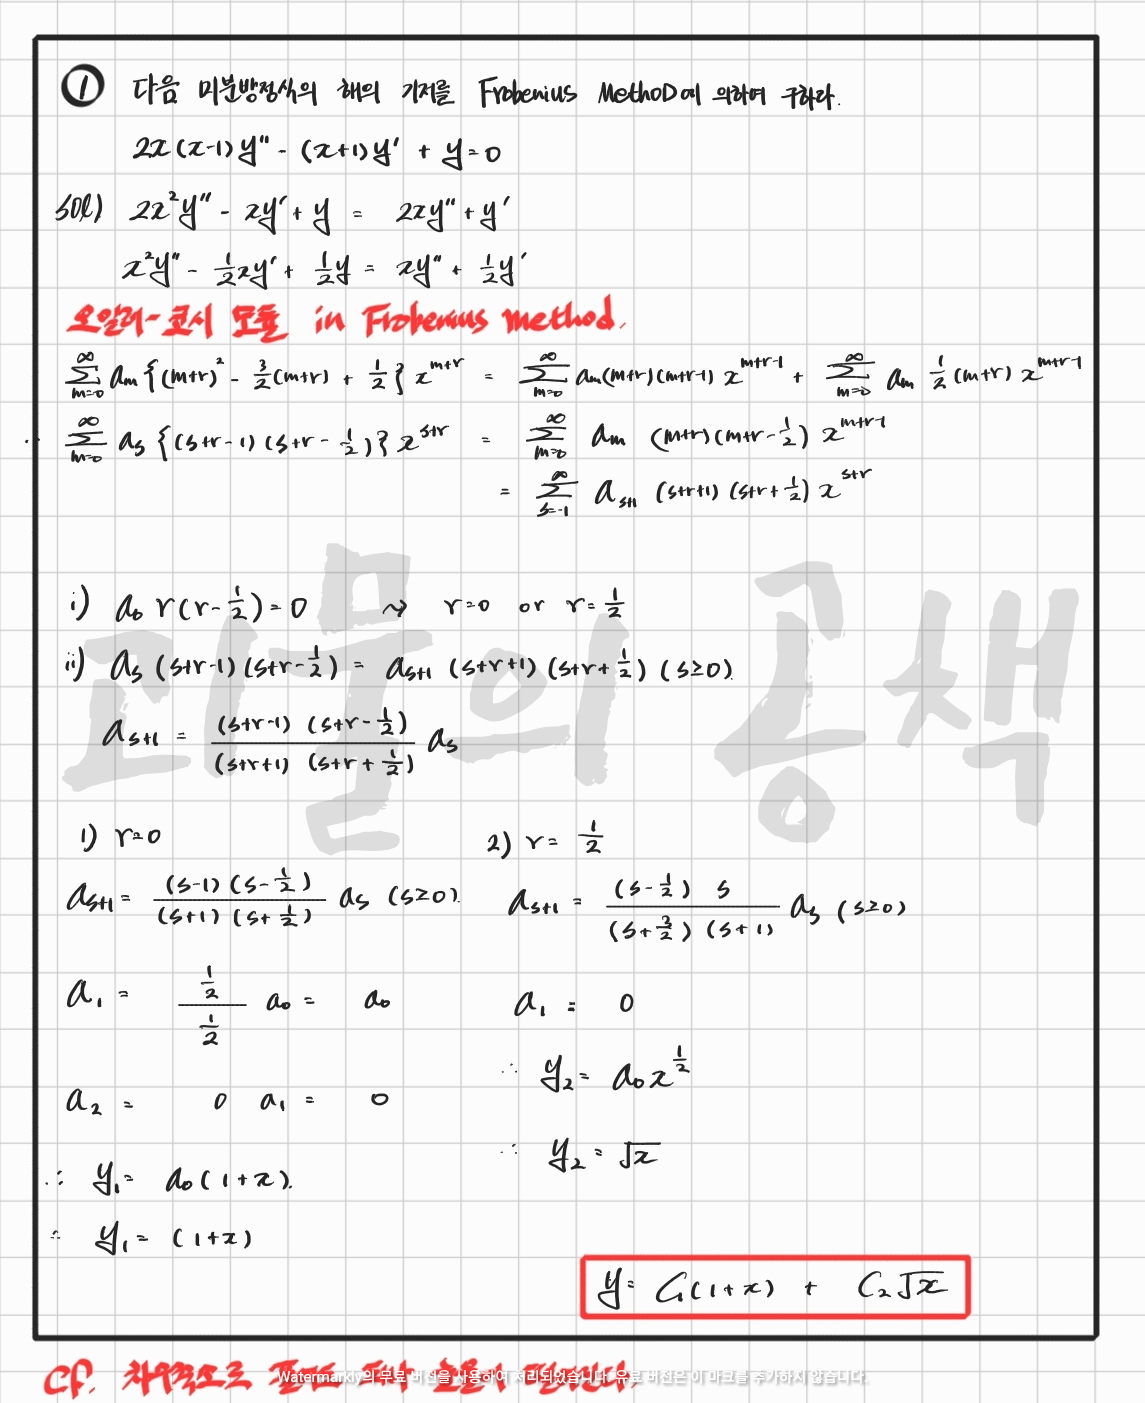 ① 다음 미분방정식의 해의 기저를 Frobenius MethoD에 의하여 구하라.
2x(x-1)y'' - (x+1)y' + y = 0
sol) 2x²y'' - xy' + y = 2xy'' + y'
x²y'' - 1/2 xy' + 1/2 y = xy'' + 1/2 y'
오일러-코시 모듈 in Frobenius method.
∑_{m=0}^{∞} a_m {(m+r)² - 3/2 (m+r) + 1/2} x^{m+r} = ∑_{m=0}^{∞} a_m (m+r)(m+r-1) x^{m+r-1} + ∑_{m=0}^{∞} a_m 1/2 (m+r) x^{m+r-1}
∴ ∑_{m=0}^{∞} a_s {(s+r-1)(s+r-1/2)} x^{s+r} = ∑_{m=0}^{∞} a_m (m+r)(m+r-1/2) x^{m+r-1}
= ∑_{s=-1}^{∞} a_{s+1} (s+r+1)(s+r+1/2) x^{s+r}
i) a_0 r(r-1/2) = 0 ⤳ r=0 or r=1/2
ii) a_s (s+r-1)(s+r-1/2) = a_{s+1} (s+r+1)(s+r+1/2) (s≥0).
a_{s+1} = (s+r-1)(s+r-1/2) / (s+r+1)(s+r+1/2) a_s
괴물의 공책
1) r=0
a_{s+1} = (s-1)(s-1/2) / (s+1)(s+1/2) a_s (s≥0).
a_1 = 1/2 / 1/2 a_0 = a_0
a_2 = 0 a_1 = 0
∴ y_1 = a_0(1+x).
∴ y_1 = (1+x)
2) r = 1/2
a_{s+1} = (s-1/2) s / (s+3/2)(s+1) a_s (s≥0)
a_1 = 0
∴ y_2 = a_0 x^{1/2}
∴ y_2 = √x
y = C_1(1+x) + C_2√x
Cf. 차수적으로
Watermarkly의 무료 버전을 사용하여 처리되었습니다. 유료 버전은 이 마크를 추가하지 않습니다.